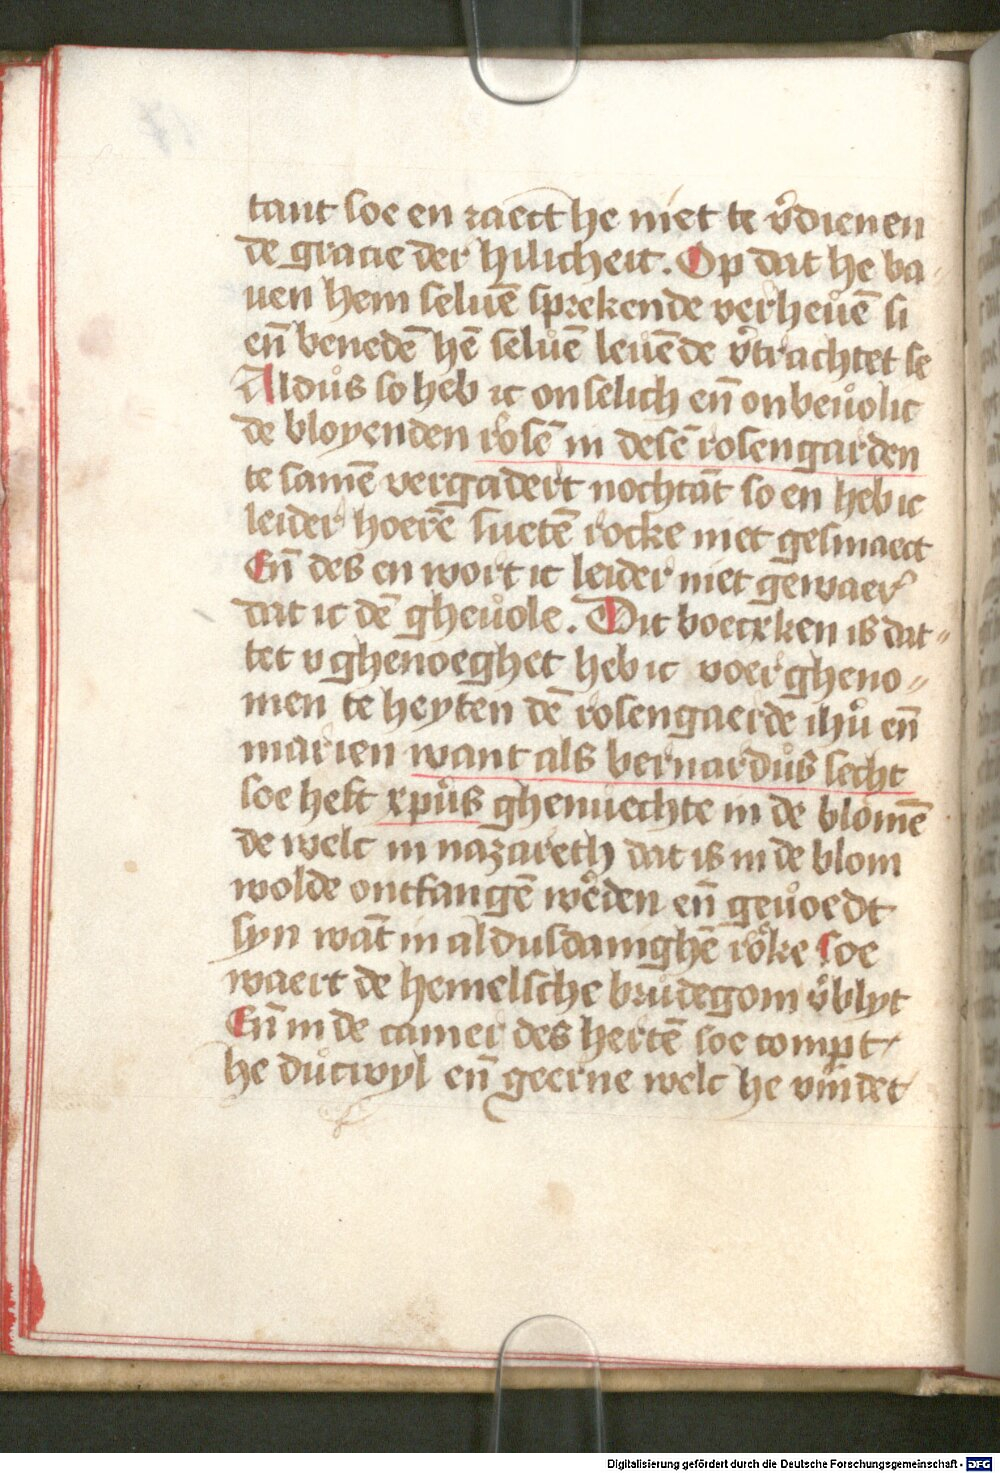 tant soe en raect he niet te v̉dienen
de gracie der hilicheit. Op dat he ba-
uen hem seluē sprekende verheuē si
eñ benedē hē seluē leuēde v̉trachtet se
Aldus so heb ic onselich eñ onbeuolic
de bloyenden rosē in desē rosengarden
te samē vergadert nochtāt so en heb ic
leider hoerē suetē rocke niet gesmaect
Eñ des en wort ic leider niet gewaer
dat ic dē gheuole. Dit boecxken is dat-
tet v ghenoeghet heb ic voer gheno-
men te heyten dē rosengaerdē ihū eñ
marien want als bernardus secht
soe heft xpūs ghenuechte in de blomē
de welc in nazareth dat is in de blom
wolde ontfangē wērden eñ geuoedt
syn wāt in aldusdanighē rōke soe
waert de hemelsche brudegom v̉blyt
Eñ in de camer des hertē soe compt
he ducwyl eñ geerne welc he vīndet
Digitalisierung gefördert durch die Deutsche Forschungsgemeinschaft - DFG